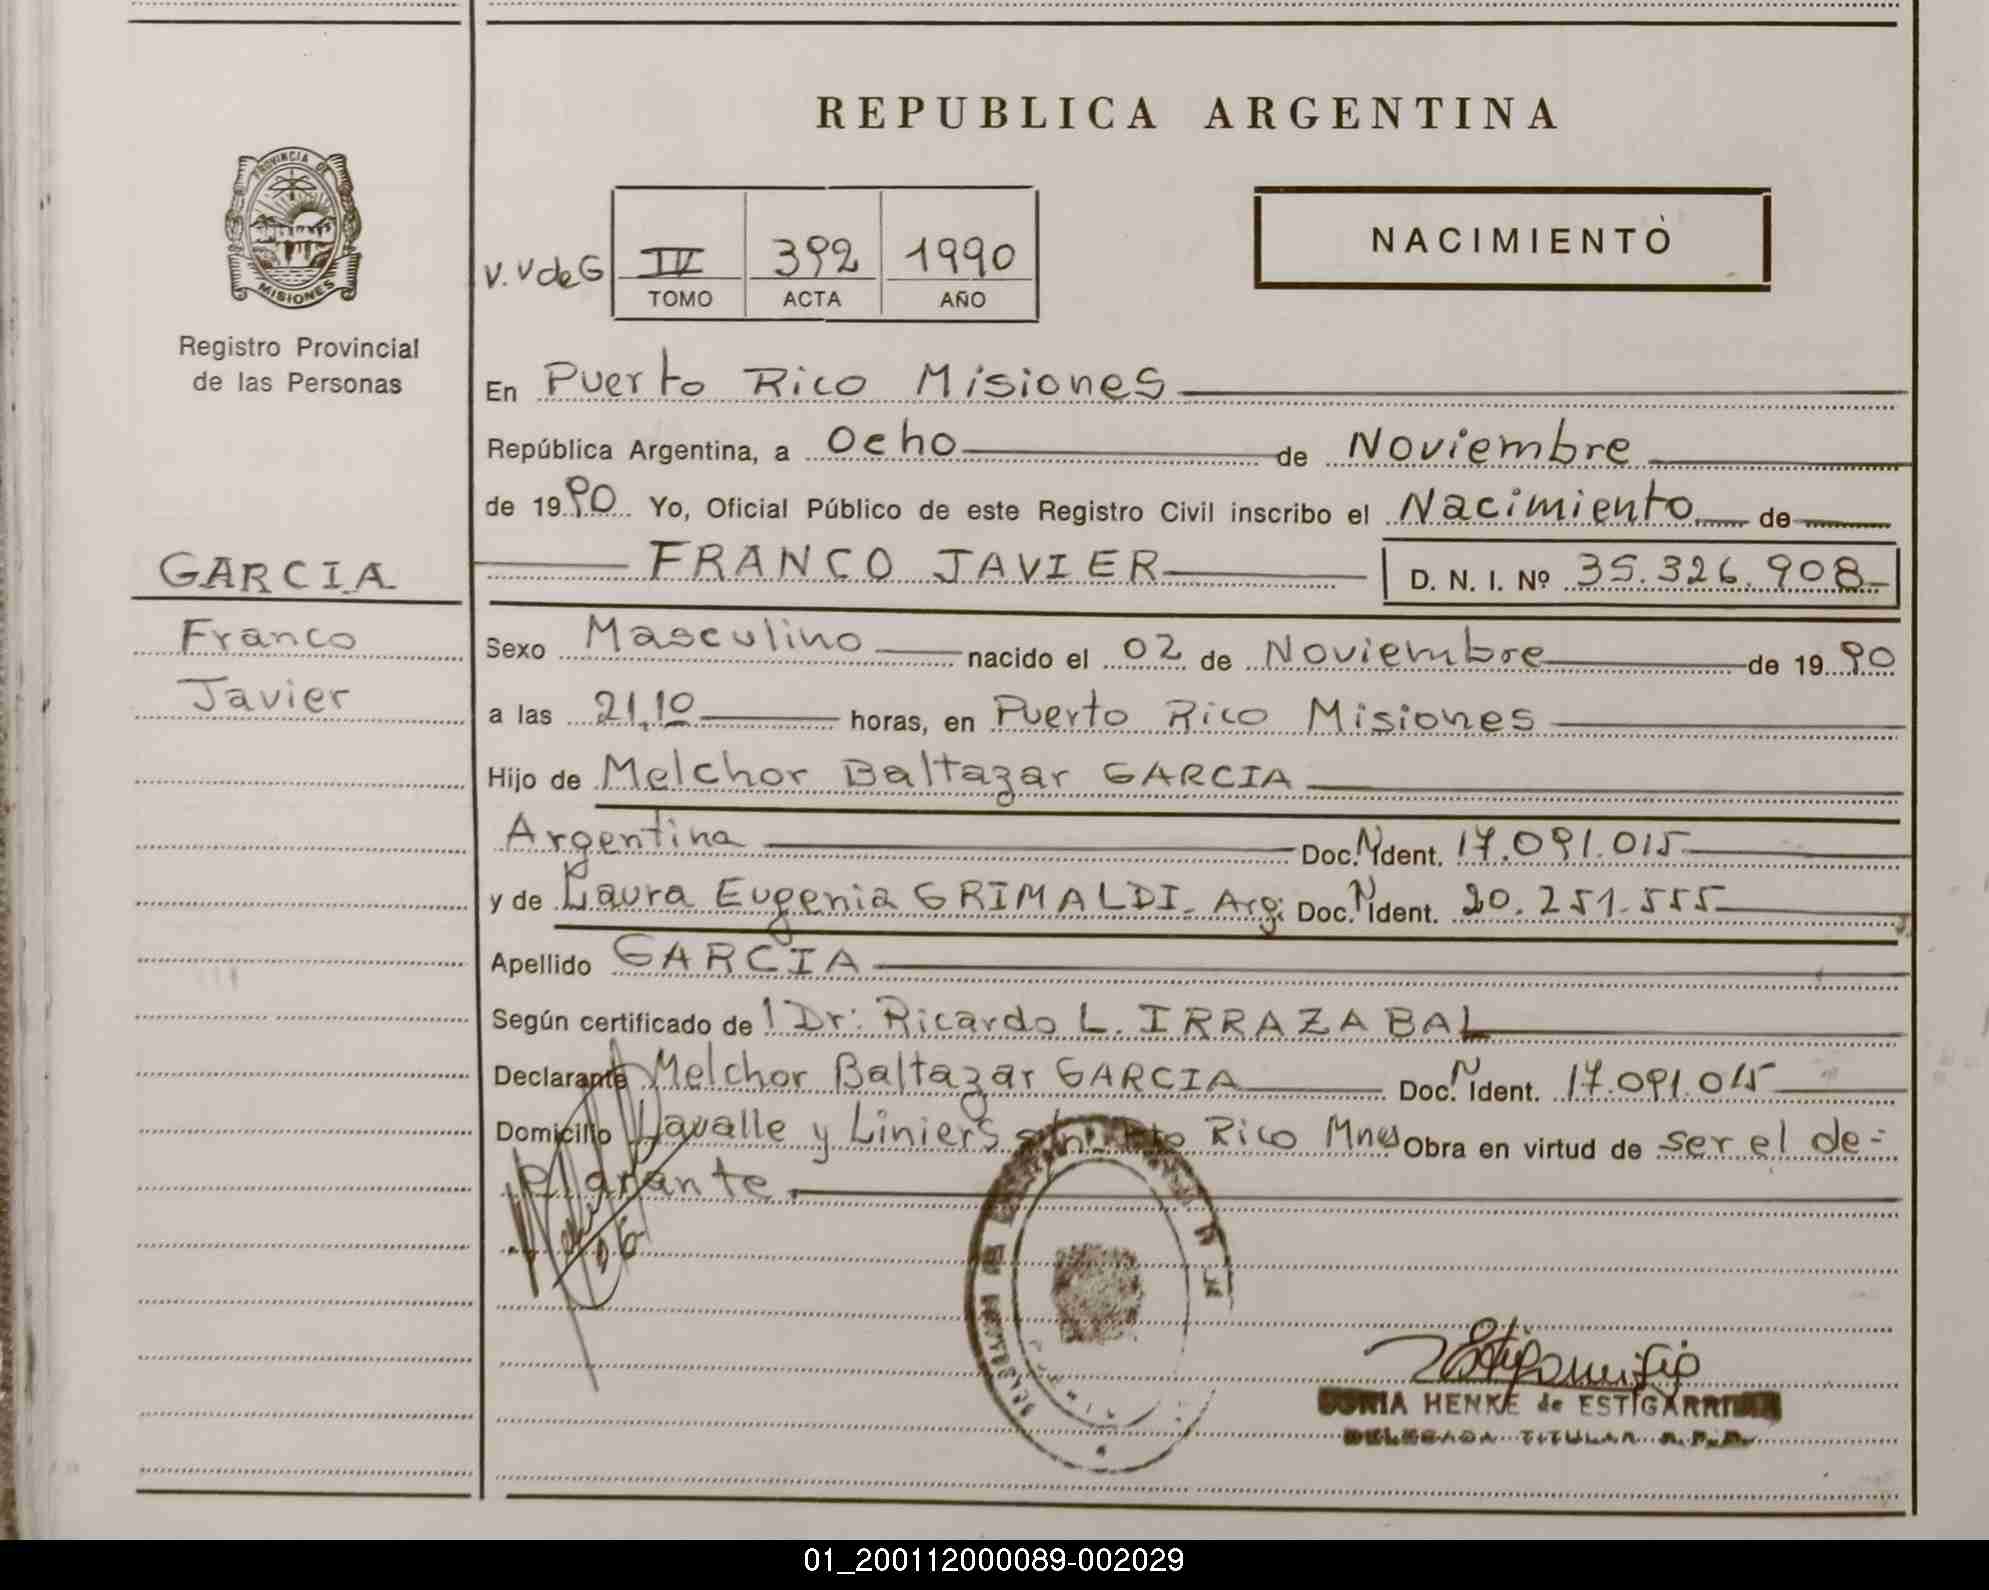 REPUBLICA ARGENTINA
PROVINCIA DE
MISIONES
Registro Provincial
de las Personas
V.VdeG IV 392 1990
TOMO ACTA AÑO
NACIMIENTO
En Puerto Rico Misiones
República Argentina, a Ocho de Noviembre
de 1990 Yo, Oficial Público de este Registro Civil inscribo el Nacimiento de
FRANCO JAVIER D. N. I. Nº 35.326.908
GARCIA
Franco
Javier
Sexo Masculino nacido el 02 de Noviembre de 1990
a las 21,10 horas, en Puerto Rico Misiones
Hijo de Melchor Baltazar GARCIA
Argentina Doc. N Ident. 17.091.015
y de Laura Eugenia GRIMALDI. Arg: Doc. N Ident. 20.251.555
Apellido GARCIA
Según certificado de l Dr: Ricardo L. IRRAZABAL
Declarante Melchor Baltazar GARCIA Doc. N Ident. 17.091.015
Domicilio Lavalle y Liniers Rico Mnes Obra en virtud de ser el de-
clarante
HENKE de
TITULAR
01_200112000089-002029